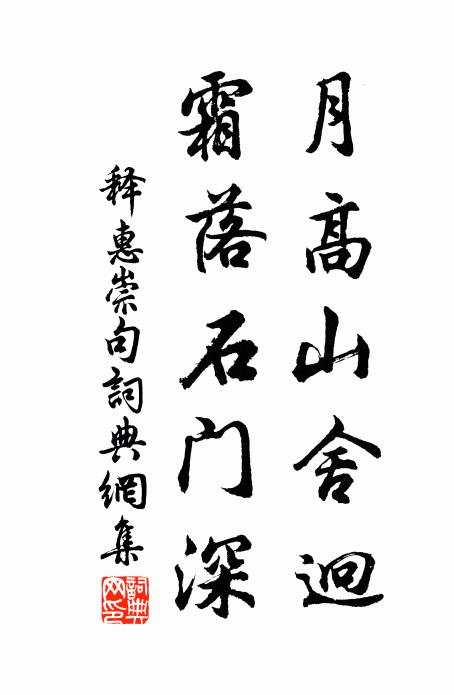 月高山舍迥
霜落石门深
释惠崇句詞典網集
詞典网印